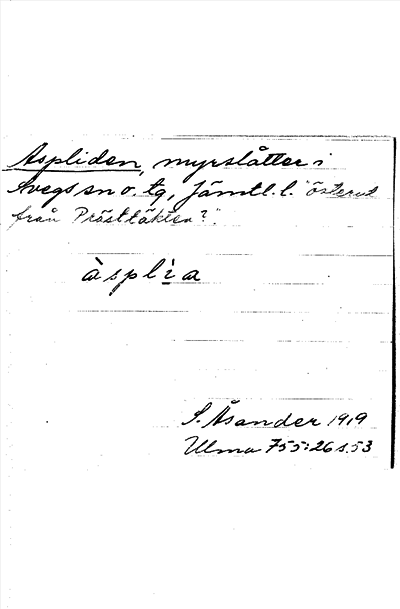 Aspliden, myrslåtter i
Svegs sn o. tg, Jämtl. l. "österut
från Prästtäkten?".
àsplị̀a
S. Åsander 1919
Ulma 755:26 s.53